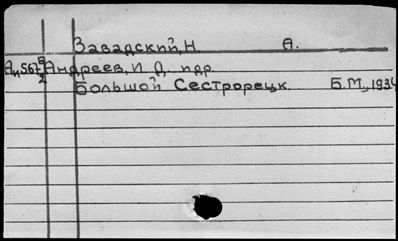 Завадский, Н. А.
А11,567 Б/2 Андреев, И. О. идр.
Большой Сестрорецк. Б.М., 1934